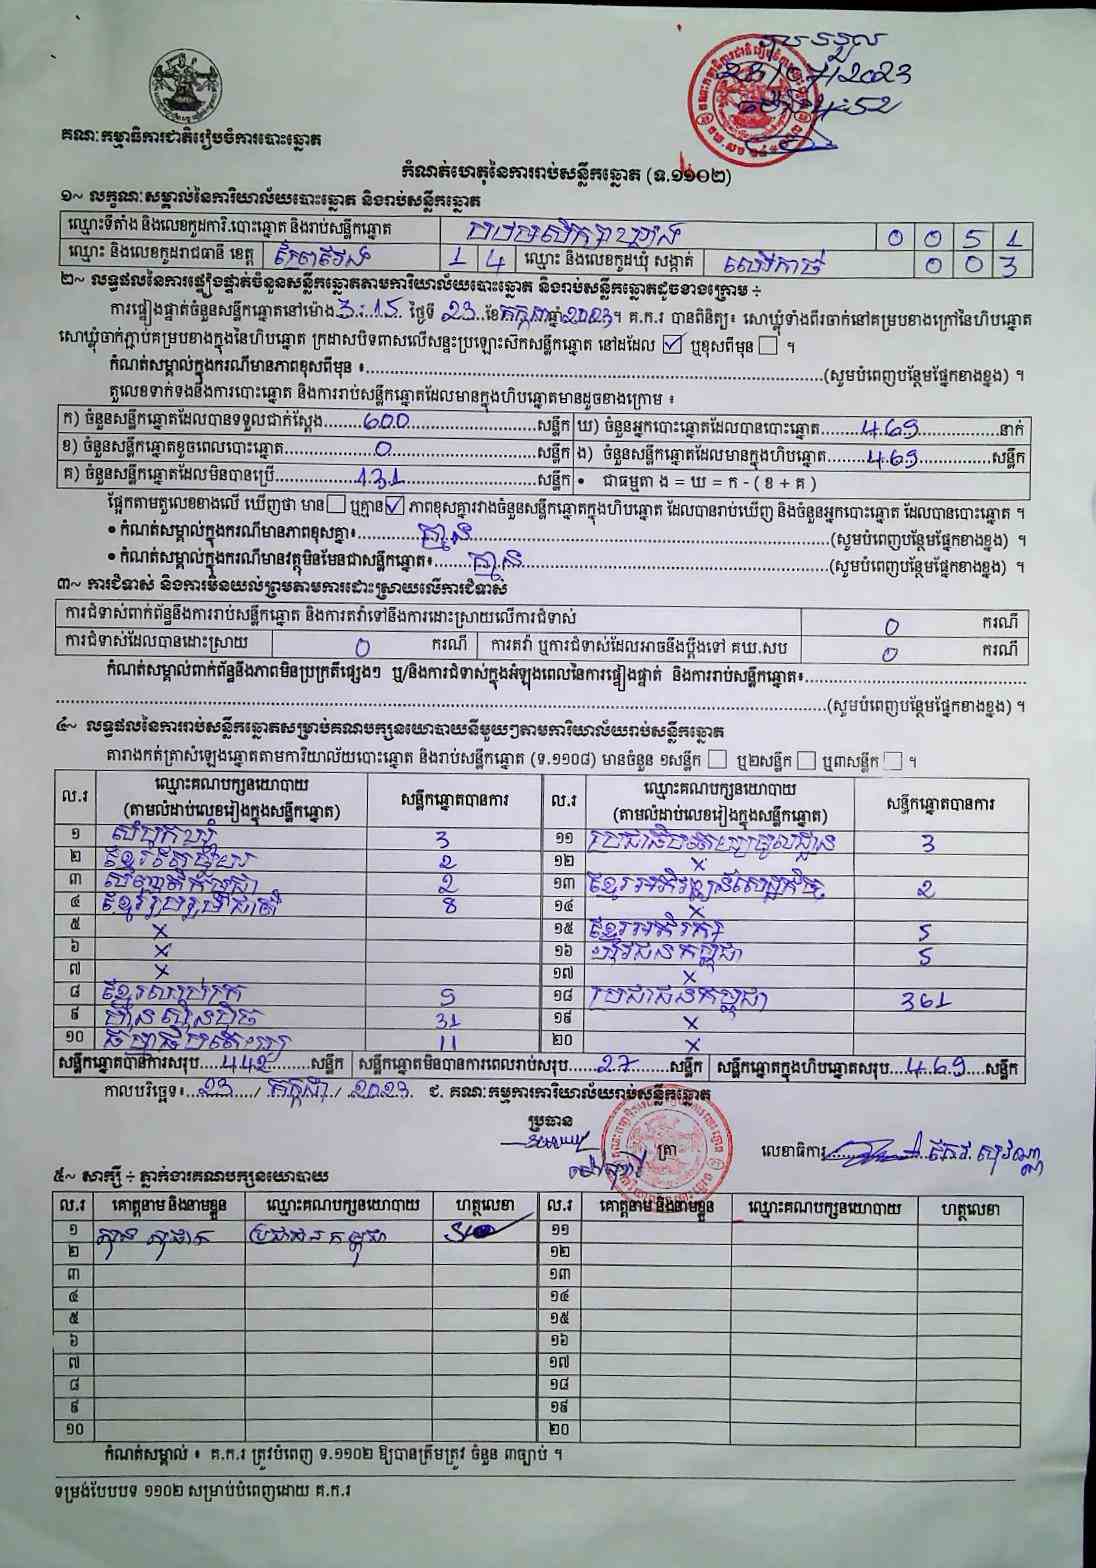 ទទួល
23/07/2023
4:52
គណៈកម្មាធិការជាតិរៀបចំការបោះឆ្នោត
កំណត់ហេតុនៃការរាប់សន្លឹកឆ្នោត (ទ.១១០២)
១~ លក្ខណៈសម្គាល់នៃការិយាល័យបោះឆ្នោត និងរាប់សន្លឹកឆ្នោត
ឈ្មោះទីតាំង និងលេខកូដការិ.បោះឆ្នោត និងរាប់សន្លឹកឆ្នោត 0 0 5 1
ឈ្មោះ និងលេខកូដរាជធានី ខេត្ត ព្រៃវែង 1 4 ឈ្មោះ និងលេខកូដឃុំ សង្កាត់ 0 0 3
២~ លទ្ធផលនៃការផ្ទៀងផ្ទាត់ចំនួនសន្លឹកឆ្នោតតាមការិយាល័យបោះឆ្នោត និងរាប់សន្លឹកឆ្នោតដូចខាងក្រោម ៖
ការផ្ទៀងផ្ទាត់ចំនួនសន្លឹកឆ្នោតនៅម៉ោង 3:15 ថ្ងៃទី 23 ខែ កក្កដា ឆ្នាំ 2023។ គ.ក.រ បានពិនិត្យ៖ សោឃ្លុំទាំងពីរចាក់នៅគម្របខាងក្រៅនៃហិបឆ្នោត
សោឃ្លុំចាក់ភ្ជាប់គម្របខាងក្នុងនៃហិបឆ្នោត ក្រដាសបិទពាសលើសន្ទះប្រឡោះសឹកសន្លឹកឆ្នោត នៅដដែល ☑ ឬខុសពីមុន ☐ ។
កំណត់សម្គាល់ក្នុងករណីមានភាពខុសពីមុន ៖ (សូមបំពេញបន្ថែមផ្នែកខាងខ្នង) ។
តួលេខទាក់ទងនឹងការបោះឆ្នោត និងការរាប់សន្លឹកឆ្នោតដែលមានក្នុងហិបឆ្នោតមានដូចខាងក្រោម ៖
ក) ចំនួនសន្លឹកឆ្នោតដែលបានទទួលជាក់ស្តែង 600 សន្លឹក ឃ) ចំនួនអ្នកបោះឆ្នោតដែលបានបោះឆ្នោត 469 នាក់
ខ) ចំនួនសន្លឹកឆ្នោតខូចពេលបោះឆ្នោត 0 សន្លឹក ង) ចំនួនសន្លឹកឆ្នោតដែលមានក្នុងហិបឆ្នោត 469 សន្លឹក
គ) ចំនួនសន្លឹកឆ្នោតដែលមិនបានប្រើ 131 សន្លឹក • ជាធម្មតា ង = ឃ = ក - ( ខ + គ )
ផ្អែកតាមតួលេខខាងលើ ឃើញថា មាន ☐ ឬគ្មាន ☑ ភាពខុសគ្នារវាងចំនួនសន្លឹកឆ្នោតក្នុងហិបឆ្នោត ដែលបានរាប់ឃើញ និងចំនួនអ្នកបោះឆ្នោត ដែលបានបោះឆ្នោត ។
• កំណត់សម្គាល់ក្នុងករណីមានភាពខុសគ្នា៖ គ្មាន (សូមបំពេញបន្ថែមផ្នែកខាងខ្នង) ។
• កំណត់សម្គាល់ក្នុងករណីមានវត្ថុមិនមែនជាសន្លឹកឆ្នោត៖ គ្មាន (សូមបំពេញបន្ថែមផ្នែកខាងខ្នង) ។
៣~ ការជំទាស់ និងការមិនយល់ព្រមតាមការដោះស្រាយលើការជំទាស់
ការជំទាស់ពាក់ព័ន្ធនឹងការរាប់សន្លឹកឆ្នោត និងការតវ៉ាទៅនឹងការដោះស្រាយលើការជំទាស់ 0 ករណី
ការជំទាស់ដែលបានដោះស្រាយ 0 ករណី ការតវ៉ា ឬការជំទាស់ដែលអាចនឹងប្តឹងទៅ គឃ.សប 0 ករណី
កំណត់សម្គាល់ពាក់ព័ន្ធនឹងភាពមិនប្រក្រតីផ្សេងៗ ឬ/និងការជំទាស់ក្នុងអំឡុងពេលនៃការផ្ទៀងផ្ទាត់ និងការរាប់សន្លឹកឆ្នោត៖
(សូមបំពេញបន្ថែមផ្នែកខាងខ្នង) ។
៤~ លទ្ធផលនៃការរាប់សន្លឹកឆ្នោតសម្រាប់គណបក្សនយោបាយនីមួយៗតាមការិយាល័យរាប់សន្លឹកឆ្នោត
តារាងកត់ត្រាសំឡេងឆ្នោតតាមការិយាល័យបោះឆ្នោត និងរាប់សន្លឹកឆ្នោត (ទ.១១០៨) មានចំនួន ១សន្លឹក ☐ ឬ២សន្លឹក ☐ ឬ៣សន្លឹក ☐ ។
ល.រ ឈ្មោះគណបក្សនយោបាយ (តាមលំដាប់លេខរៀងក្នុងសន្លឹកឆ្នោត) សន្លឹកឆ្នោតបានការ ល.រ ឈ្មោះគណបក្សនយោបាយ (តាមលំដាប់លេខរៀងក្នុងសន្លឹកឆ្នោត) សន្លឹកឆ្នោតបានការ
១ សំបុកឃ្មុំ 3 ១១ ប្រជាធិបតេយ្យមូលដ្ឋាន 3
២ ខ្មែរតែមួយ 2 ១២ x
៣ 2 ១៣ ខ្មែរអភិវឌ្ឍន៍សេដ្ឋកិច្ច 2
៤ ខ្មែររួបរួមជាតិ 8 ១៤ x
៥ x ១៥ ខ្មែរអភិរក្ស 5
៦ x ១៦ យុវជនកម្ពុជា 5
៧ x ១៧ x
៨ 9 ១៨ ប្រជាជនកម្ពុជា 361
៩ ហ៊្វុនស៊ិនប៉ិច 31 ១៩ x
១០ ធម្មាធិបតេយ្យ 11 ២០ x
សន្លឹកឆ្នោតបានការសរុប 442 សន្លឹក សន្លឹកឆ្នោតមិនបានការពេលរាប់សរុប 27 សន្លឹក សន្លឹកឆ្នោតក្នុងហិបឆ្នោតសរុប 469 សន្លឹក
កាលបរិច្ឆេទ៖ 23 / កក្កដា / 2023 ជ. គណៈកម្មការការិយាល័យរាប់សន្លឹកឆ្នោត
ប្រធាន
ត្រា
លេខាធិការ កែវ សុវណ្ណ
៥~ សាក្សី ÷ ភ្នាក់ងារគណបក្សនយោបាយ
ល.រ គោត្តនាម និងនាមខ្លួន ឈ្មោះគណបក្សនយោបាយ ហត្ថលេខា ល.រ គោត្តនាម និងនាមខ្លួន ឈ្មោះគណបក្សនយោបាយ ហត្ថលេខា
១ ប្រជាជនកម្ពុជា ១១
២ ១២
៣ ១៣
៤ ១៤
៥ ១៥
៦ ១៦
៧ ១៧
៨ ១៨
៩ ១៩
១០ ២០
កំណត់សម្គាល់ ៖ គ.ក.រ ត្រូវបំពេញ ទ.១១០២ ឱ្យបានត្រឹមត្រូវ ចំនួន ៣ច្បាប់ ។
ទម្រង់បែបបទ ១១០២ សម្រាប់បំពេញដោយ គ.ក.រ